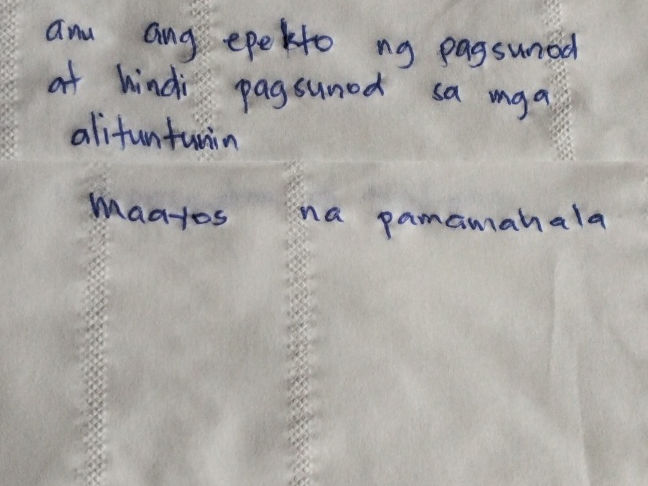 anu ang epekto ng pagsunod
at hindi pagsunod sa mga
alituntunin
Maayos na pamamahala